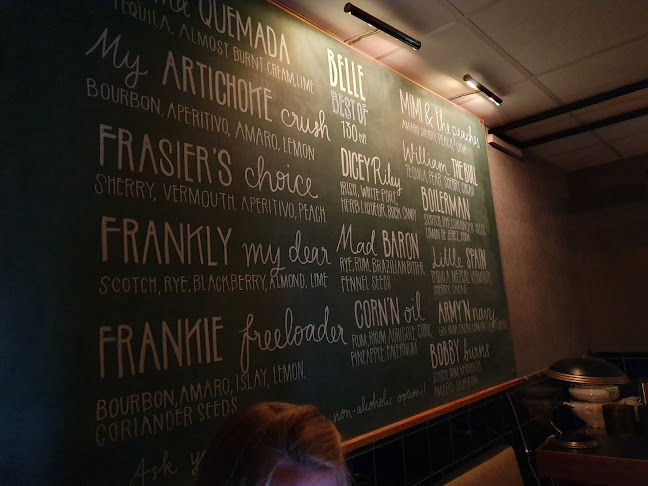 QUEMADA
TEQUILA, ALMOST BURNT CREAM, LIME
My ARTICHOKE crush
BOURBON, APERITIVO, AMARO, LEMON
FRASIER'S choice
SHERRY, VERMOUTH, APERITIVO, PEACH
FRANKLY my dear
SCOTCH, RYE, BLACKBERRY, ALMOND, LIME
FRANKIE freeloader
BOURBON, AMARO, ISLAY, LEMON,
CORIANDER SEEDS
Ask
non-alcoholic options!
BELLE
BEST OF
130 KR
DICEY Riley
IRISH, WHITE PORT,
HERB LIQUEUR, ROCK CANDY
Mad BARON
RYE, RUM, BRAZILIAN BITTER,
FENNEL SEEDS
CORN'N oil
RUM, RHUM AGRICOLE, CORN,
PINEAPPLE, FALERNUM
MIMI & the peaches
William THE BULL
TEQUILA, PEAR, SHERRY
BOILERMAN
Little SPAIN
TEQUILA, MEZCAL, VERMOUTH,
SHERRY
ARMY'N navy
BOBBY burns